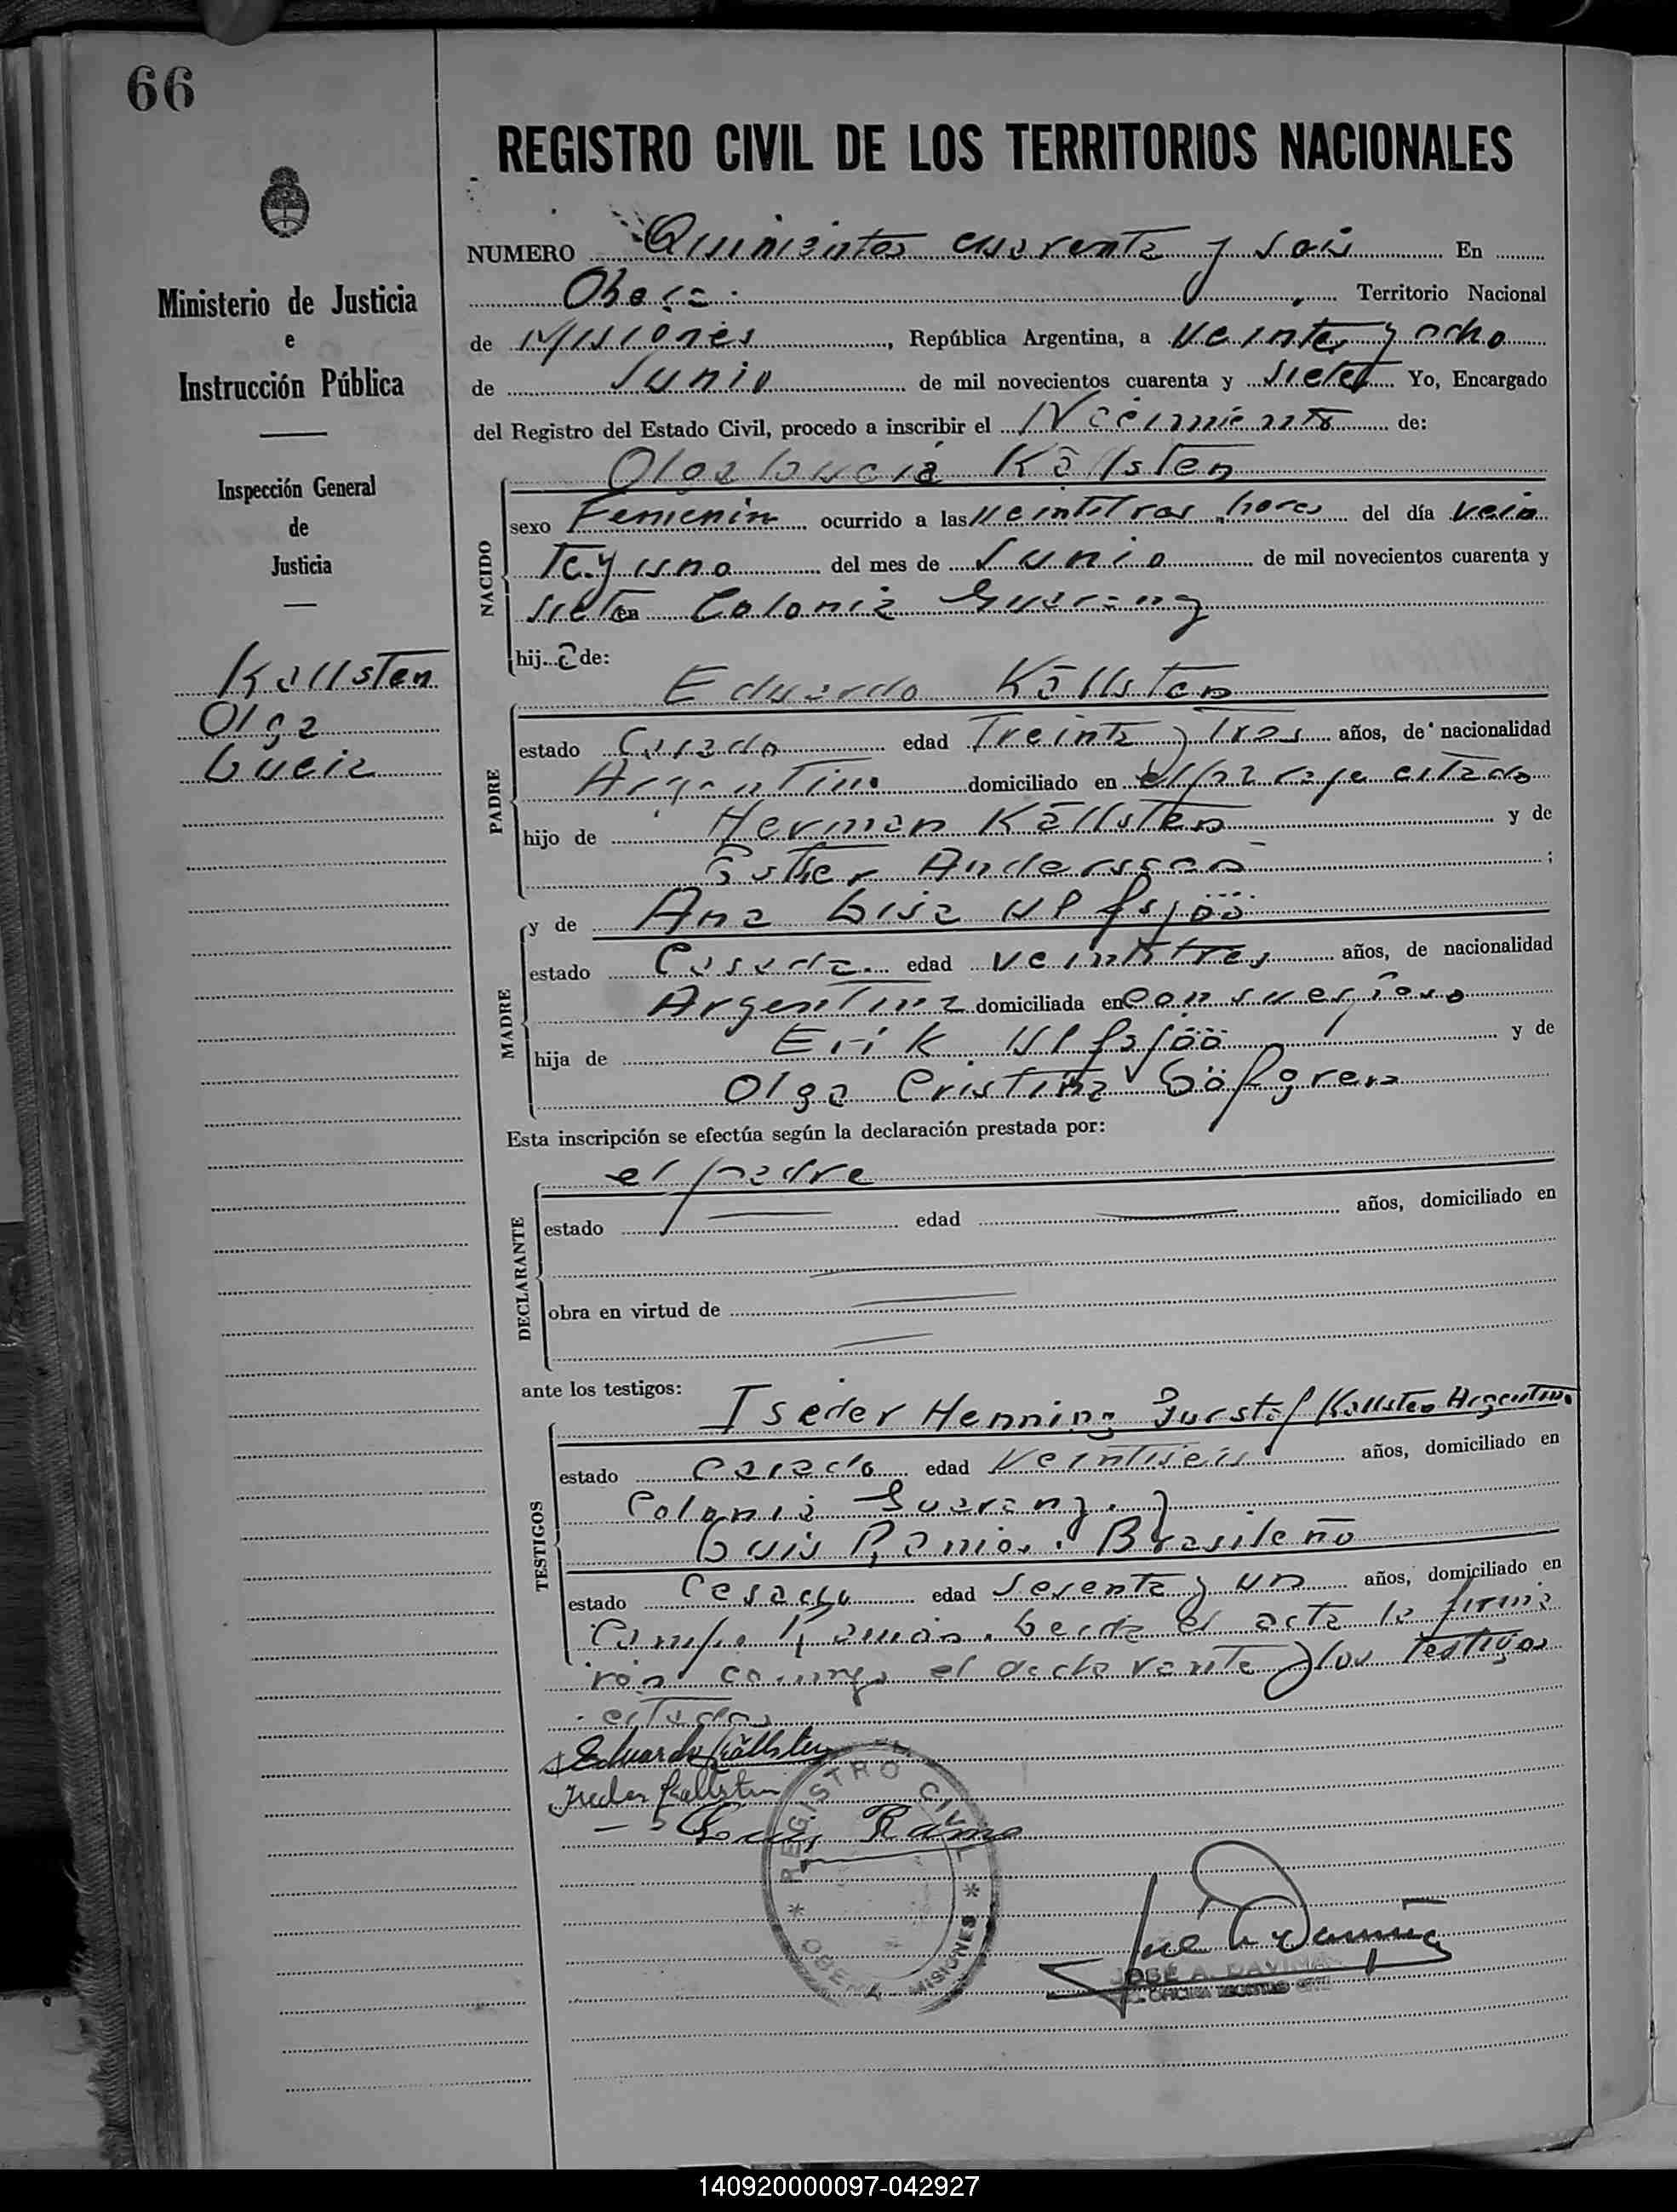 66
REGISTRO CIVIL DE LOS TERRITORIOS NACIONALES
Ministerio de Justicia
e
Instrucción Pública
Inspección General
de
Justicia
Kallsten
Olga
Lucia
NUMERO Quinientos cuarenta y seis En
Obera Territorio Nacional
de Misiones, República Argentina, a veinte y ocho
de Junio de mil novecientos cuarenta y siete Yo, Encargado
del Registro del Estado Civil, procedo a inscribir el Nacimiento de:
Olga Lucia Källsten
NACIDO
sexo Femenin ocurrido a las veintitres horas del día vein
te y uno del mes de Junio de mil novecientos cuarenta y
siete en Colonia Guarany
hij a de:
Eduardo Källsten
PADRE
estado Casado edad Treinta y Tres años, de nacionalidad
Argentino domiciliado en el paraje citado
hijo de Herman Källsten y de
Esther Andersson ;
y de Ana Lisa Ulfsjöö
MADRE
estado Casada edad veintitres años, de nacionalidad
Argentina domiciliada en con su esposo
hija de Erik Ulfsjöö y de
Olga Cristina Löfgren
Esta inscripción se efectúa según la declaración prestada por:
el padre
DECLARANTE
estado edad años, domiciliado en
obra en virtud de
ante los testigos:
Iseder Henning Gustaf Kallsten Argentino
TESTIGOS
estado casado edad Veintiseis años, domiciliado en
Colonia Guarany. y
Luis Ramos. Brasileño
estado Casado edad Sesenta y un años, domiciliado en
Campo Ramón. Leida el acta la firma
ron conmigo el declarante y los testigos
citados
Eduardo Källsten
Iseder Källsten
Luis Ramos
REGISTRO CIVIL
* OBERA - MISIONES *
JOSÉ A. DAVIÑA
OFICINA REGISTRO CIVIL
140920000097-042927